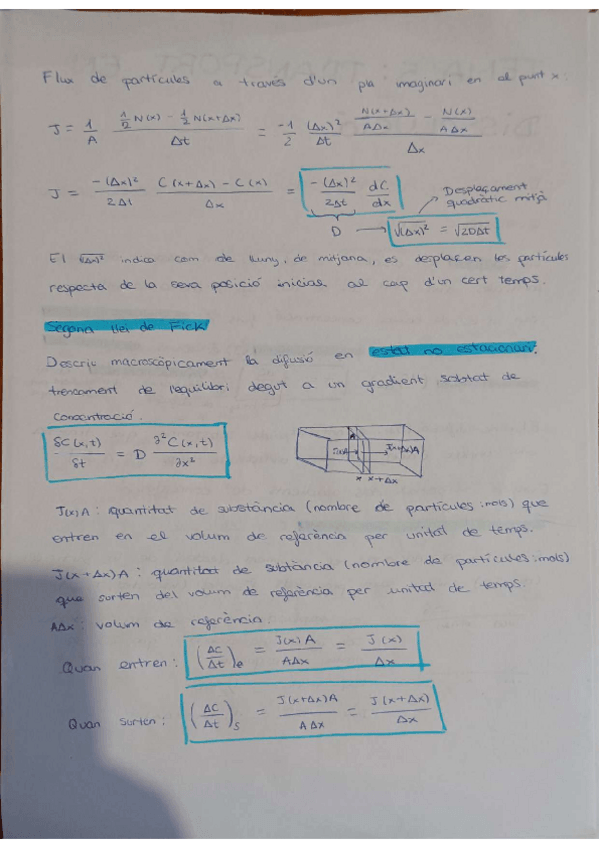 Flux de partícules a través d'un pla imaginari en el punt x:
J = 1/A (1/2 N(x) - 1/2 N(x+Δx))/Δt = -1/2 (Δx)²/Δt (N(x+Δx)/AΔx - N(x)/AΔx)/Δx
J = -(Δx)²/2Δt (C(x+Δx) - C(x))/Δx = -(Δx)²/2Δt dC/dx
Desplaçament
quadràtic mitjà
D → √(Δx)² = √2DΔt
El √(Δx)² indica com de lluny, de mitjana, es desplaçen les partícules
respecta de la seva posició inicial al cap d'un cert temps.
Segona llei de Fick
Descriu macroscòpicament la difusió en estat no estacionari,
trencament de l'equilibri degut a un gradient sobtat de
concentració.
δC(x,t)/δt = D ∂²C(x,t)/∂x²
A
J(x)A J(x+Δx)A
x x+Δx
J(x)A : quantitat de substància (nombre de partícules : mols) que
entren en el volum de referència per unitat de temps.
J(x+Δx)A : quantitat de subtància (nombre de partícules : mols)
que surten del volum de referència per unitat de temps.
AΔx : volum de referència
Quan entren : (ΔC/Δt)e = J(x)A/AΔx = J(x)/Δx
Quan surten : (ΔC/Δt)s = J(x+Δx)A/AΔx = J(x+Δx)/Δx